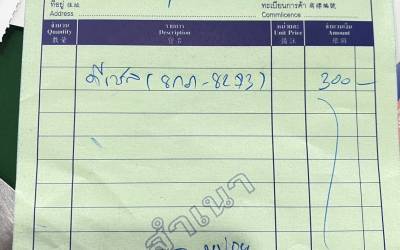 ที่อยู่ 住址 ทะเบียนการค้า 商標編號
Address Commlicence
จำนวน รายการ หน่วยละ จำนวนเงิน
Quantity Description Unit Price Amount
數量 貨名 備註 銀碼
ดีเซล (8กภ-8293) 300-
สำเนา